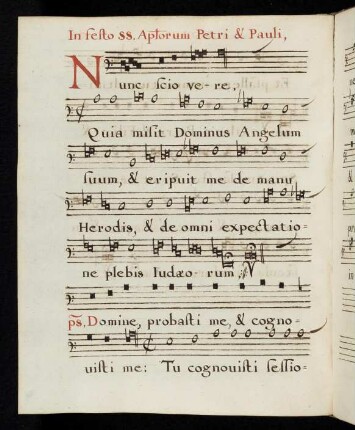 In festo SS. Aptorum Petri & Pauli,
Nunc scio ve-re,
Quia misit Dominus Angelum
suum, & eripuit me de manu
Herodis, & de omni expectatio-
ne plebis Iudæo rum
ps, Domine, probasti me, & cogno-
uisti me: Tu cognouisti sessio-